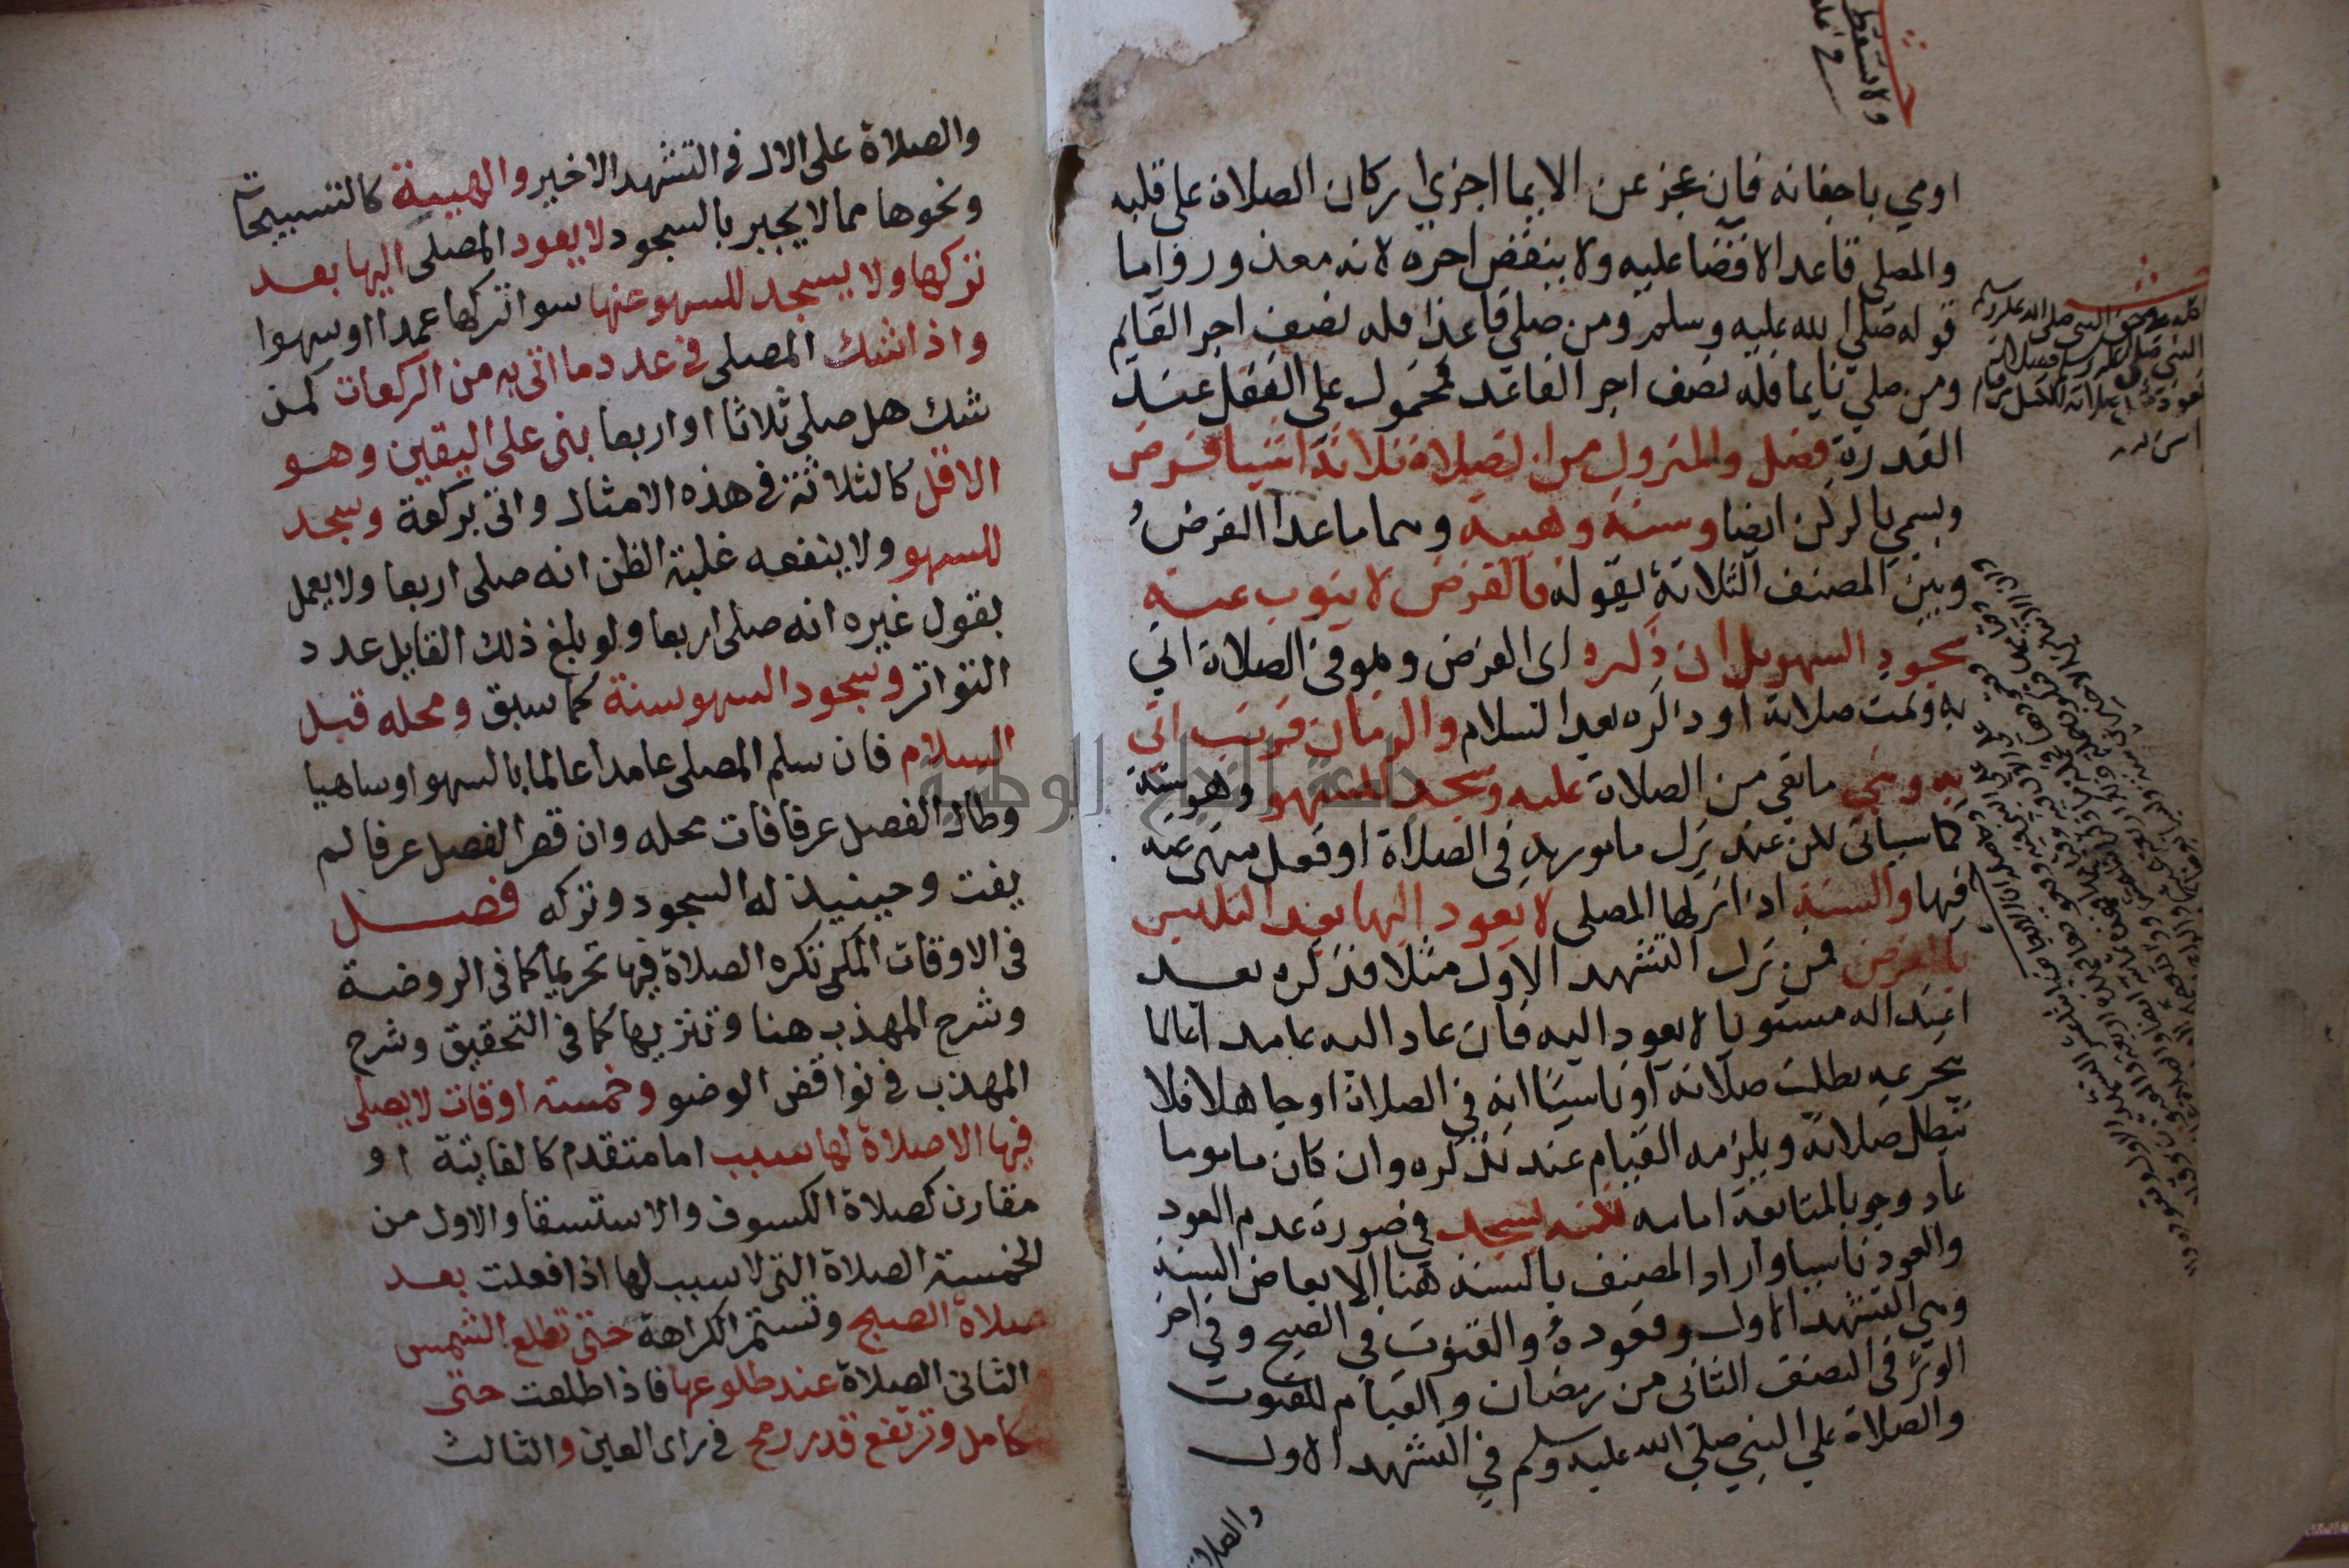 اومي باجفانه فان عجز عن الايما اجزي اركان الصلاة على قلبه
والمصلي قاعدا لا قضا عليه ولا ينقص اجره لانه معذور واما
قوله صلي الله عليه وسلم ومن صلي قاعدا فله نصف اجر القايم
ومن صلي نايما فله نصف اجر القاعد فمحمول على النفل عند
القدرة فصل والمتروك من الصلاة ثلاثة اشيا فرض
ويسمي بالركن ايضا وسنة وهيية وهما ما عدا الفرض
وبين المصنف الثلاثة بقوله فالفرض لا ينوب عنه
سجود السهو بل ان ذكره اي الفرض وهو في الصلاة اتي
به وتمت صلاته او ذكره بعد السلام والزمان قريب اتي
به وبني ما بقي من الصلاة عليه وسجد للسهو وهو سنة
كما سياتي لكن عند ترك مامور به في الصلاة او فعل منهي عنه
فيها والسنة اذا تركها المصلي لا يعود اليها بعد التلبس
بالفرض فمن ترك التشهد الاول مثلا فذكره بعد
اعتداله مستويا لا يعود اليه فان عاد اليه عامدا عالما
بتحريمه بطلت صلاته او ناسيا انه في الصلاة او جاهلا فلا
تبطل صلاته ويلزمه القيام عند تذكره وان كان ماموما
عاد وجوبا لمتابعة امامه لكنه يسجد في صورة عدم العود
والعود ناسيا واراد المصنف بالسنة هنا الابعاض الستة
وهي التشهد الاول وقعوده والقنوت في الصبح وفي اخر
الوتر في النصف الثاني من رمضان والقيام للقنوت
والصلاة علي النبي صلي الله عليه وسلم في التشهد الاول
والصلاة
والصلاة على الال في التشهد الاخير والهيية كالتسبيحات
ونحوها مما لا يجبر بالسجود لا يعود المصلى اليها بعد
تركها ولا يسجد للسهو عنها سوا تركها عمدا او سهوا
واذا شك المصلى في عدد ما اتى به من الركعات كمن
شك هل صلى ثلاثا او اربعا بنى على اليقين وهو
الاقل كالثلاثة في هذه الامثال واتى بركعة وسجد
للسهو ولا ينفعه غلبة الظن انه صلى اربعا ولا يعمل
بقول غيره انه صلى اربعا ولو بلغ ذلك القايل عدد
التواتر وسجود السهو سنة كما سبق ومحله قبل
السلام فان سلم المصلى عامدا عالما بالسهو او ساهيا
وطال الفصل عرفا فات محله وان قصر الفصل عرفا لم
يفت وحينيذ له السجود وتركه فصل
في الاوقات التي تكره الصلاة فيها تحريما كما في الروضة
وشرح المهذب هنا وتنزيها كما في التحقيق وشرح
المهذب في نواقض الوضو وخمسة اوقات لا يصلى
فيها الا صلاة لها سبب اما متقدم كالفايتة او
مقارن كصلاة الكسوف والاستسقا والاول من
الخمسة الصلاة التي لا سبب لها اذا فعلت بعد
صلاة الصبح وتستمر الكراهة حتى تطلع الشمس
الثاني الصلاة عند طلوعها فاذا طلعت حتى
تتكامل وترتفع قدر رمح في راى العين والثالث
جامعة النجاح الوطنية